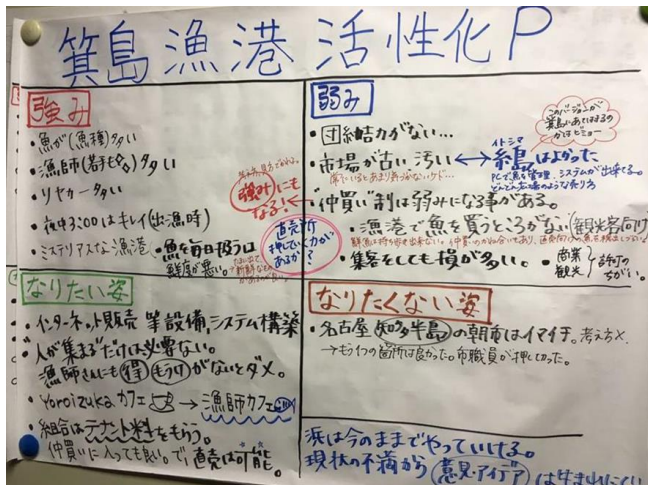 箕島漁港活性化P
強み
・魚が(魚種)多い
・漁師(若手も)多い
・リヤカー多い
・夜中3:00はキレイ(出漁時)
・ミステリアスな漁港
・魚を毎日扱うは
鮮度が悪い。
強みにも
なる!
直売所
押していく力が
あるか?
弱み
・団結力がない…
・市場が古い汚い ↔ 糸島はよかった
イトシマ
このバージョンが
箕島にあてはまるの
かはビミョー
・仲買い制は弱みになる事がある。
・漁港で魚を買うところがない(観光客向け)
・集客をしても損が多い。
・商業
観光
許可の
ちがい。
なりたい姿
・インターネット販売 等設備、システム構築
・人が集まるだけは必要ない。
漁師さんにも得 もうけがないとダメ。
・Yoroizukaカフェ → 漁師カフェ
・組合はテナント料をもらう。
仲買いに入っても良い。で直売は可能。
なりたくない姿
・名古屋(知多半島)の朝市はイマイチ。考え方×
→もう1つの箇所は良かった。市職員が押し切った。
浜は今のままでやっていける。
現状の不満から 意見・アイデア は生まれにくい